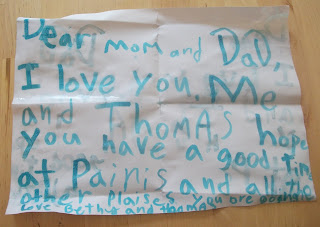 Dear mom and DaD,
I love you. Me
and Thomas hope
you have a good tim
at Pairis and all the
other plaises you are going
Love Bethy and thomas